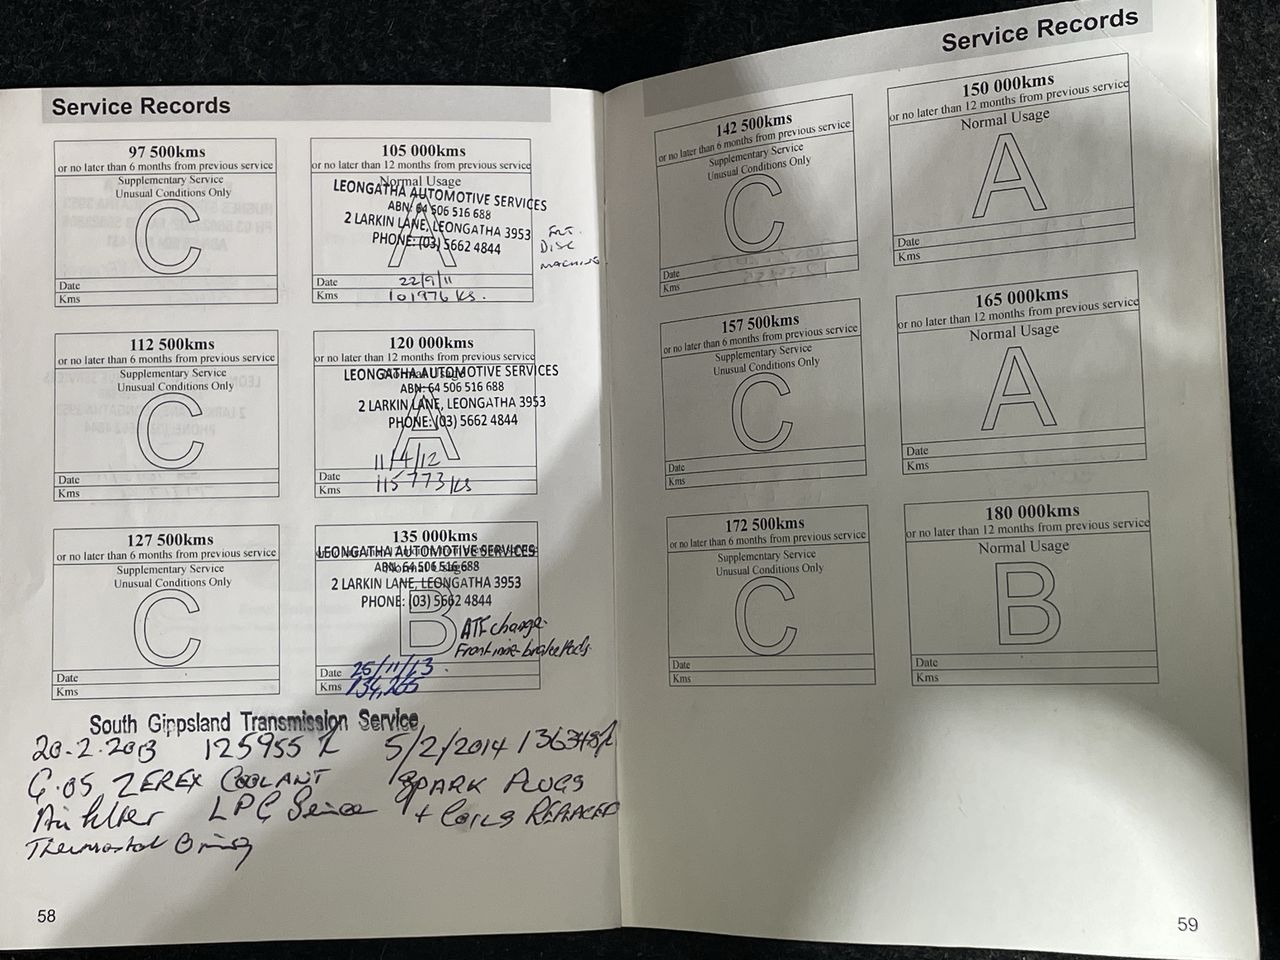 Service Records
97 500kms
or no later than 6 months from previous service
Supplementary Service
Unusual Conditions Only
C
Date
Kms
105 000kms
or no later than 12 months from previous service
Normal Usage
LEONGATHA AUTOMOTIVE SERVICES
ABN: 64 506 516 688
2 LARKIN LANE, LEONGATHA 3953
PHONE: (03) 5662 4844
A
Date 22/9/11
Kms 101976 KS.
FNT.
DISC
MACHING
112 500kms
or no later than 6 months from previous service
Supplementary Service
Unusual Conditions Only
C
Date
Kms
120 000kms
or no later than 12 months from previous service
LEONGATHA AUTOMOTIVE SERVICES
ABN: 64 506 516 688
2 LARKIN LANE, LEONGATHA 3953
PHONE: (03) 5662 4844
A
Date 11/4/12
Kms 115773 KS
127 500kms
or no later than 6 months from previous service
Supplementary Service
Unusual Conditions Only
C
Date
Kms
135 000kms
LEONGATHA AUTOMOTIVE SERVICES
ABN: 64 506 516 688
2 LARKIN LANE, LEONGATHA 3953
PHONE: (03) 5662 4844
B
ATF change.
Front brake Pads.
Date 25/11/13.
Kms 134,265
South Gippsland Transmission Service
20-2-2013 125955 K
G.05 ZEREX COOLANT
Air filter LPG Service
Thermostat Oring
5/2/2014 136348K
SPARK PLUGS
+ COILS REPLACED
58
Service Records
142 500kms
or no later than 6 months from previous service
Supplementary Service
Unusual Conditions Only
C
Date
Kms
150 000kms
or no later than 12 months from previous service
Normal Usage
A
Date
Kms
157 500kms
or no later than 6 months from previous service
Supplementary Service
Unusual Conditions Only
C
Date
Kms
165 000kms
or no later than 12 months from previous service
Normal Usage
A
Date
Kms
172 500kms
or no later than 6 months from previous service
Supplementary Service
Unusual Conditions Only
C
Date
Kms
180 000kms
or no later than 12 months from previous service
Normal Usage
B
Date
Kms
59